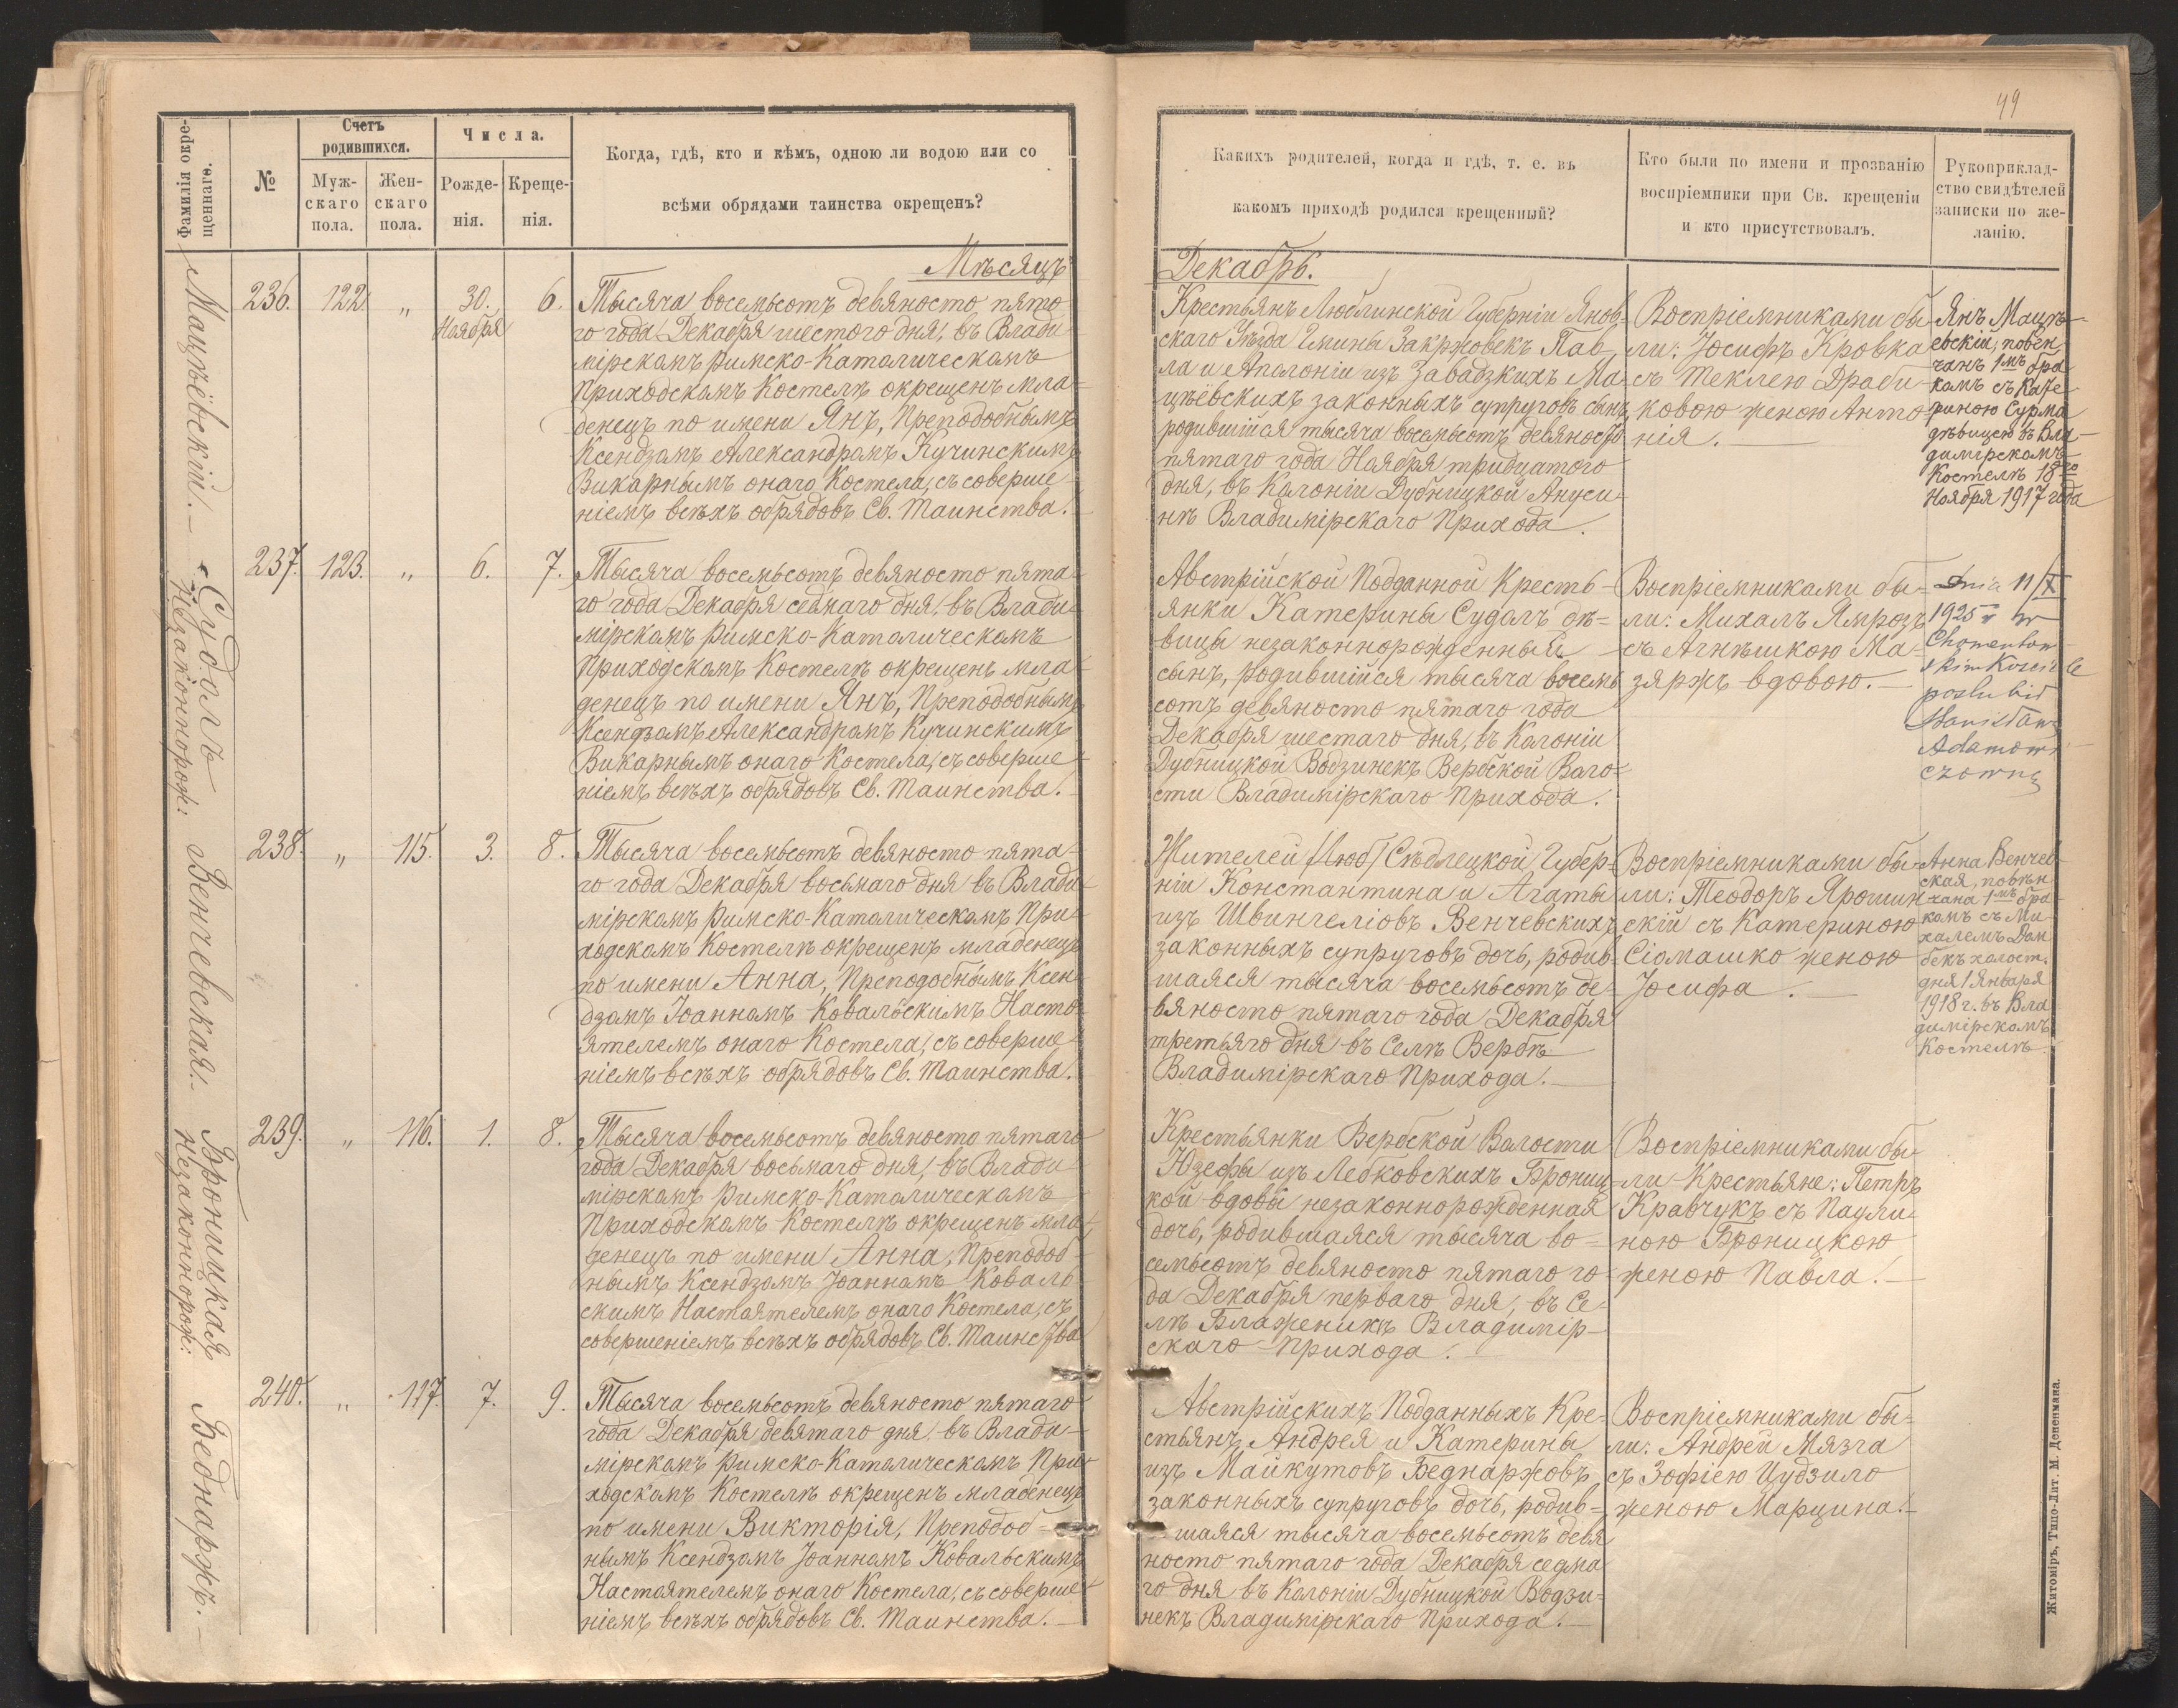 49
Фамилія окре-
щеннаго.
№
Счетъ
родившихся.
Муж-
скаго
пола.
Жен-
скаго
пола.
Числа.
Рожде-
нія.
Креще-
нія.
Когда, гдѣ, кто и кѣмъ, одною ли водою или со
всѣми обрядами таинства окрещенъ?
Какихъ родителей, когда и гдѣ, т. е. въ
какомъ приходѣ родился крещенный?
Кто были по имени и прозванію
воспріемники при Св. крещеніи
и кто присутствовалъ.
Рукоприклад-
ство свидѣтелей
записки по же-
ланію.
Мѣсяцъ
Декабрь.
Мацѣевскій.
236. 122 „ 30. 6.
Ноября
Тысяча восемьсотъ девяносто пято
го года Декабря шестого дня, въ Влади
мірскомъ Римско-Католическомъ
Приходскомъ Костелѣ окрещенъ мла-
денецъ по имени Янъ, Преподобнымъ
Ксендзомъ Александромъ Кучинскимъ
Викарнымъ онаго Костела, съ соверше-
ніемъ всѣхъ обрядовъ Св. Таинства.
Крестьянъ Люблинской Губерніи Янов-
скаго Уѣзда Гмины Закржовекъ Пав-
ла и Аполоніи изъ Завадзкихъ Ма-
цѣевскихъ законныхъ супруговъ сынъ,
родившійся тысяча восемьсотъ девяносто
пятаго года Ноября тридцатого
дня, въ Колоніи Дубницкой Ануси-
нѣ Владимірскаго Прихода.
Воспріемниками бы-
ли: Іосифъ Кровка
съ Теклею Драби-
ковою женою Анто-
нія.
Янъ Мацѣ-
евскій, повен
чанъ 1мъ бра
комъ съ Кате
риною Сурма
дѣвицею въ Вла-
димірскомъ
Костелѣ 18го
Ноября 1917 года
Судолъ
Незаконнорож:
237. 123. „ 6. 7.
Тысяча восемьсотъ девяносто пята-
го года Декабря седмаго дня, въ Влади-
мірскомъ Римско-Католическомъ
Приходскомъ Костелѣ окрещенъ мла-
денецъ по имени Янъ, Преподобнымъ
Ксендзомъ Александромъ Кучинскимъ
Викарнымъ онаго Костела, съ соверше-
ніемъ всѣхъ обрядовъ Св. Таинства.
Австрійской Подданной Кресть-
янки Катерины Судолъ дѣ-
вицы незаконнорожденный
сынъ, родившійся тысяча восемь
сотъ девяносто пятаго года
Декабря шестаго дня, въ Колоніи
Дубницкой Водзинекъ Вербской Воло-
сти Владимірскаго Прихода.
Воспріемниками бы-
ли: Михалъ Ямрозъ
съ Агнѣшкою Ма-
зяржъ вдовою.
Dnia 11/X
1925 r w
poślubił
Stanisławę
Adamow
czowną
Венчевская.
238. „ 115. 3. 8.
Тысяча восемьсотъ девяносто пята-
го года Декабря восьмаго дня въ Влади-
мірскомъ Римско-Католическомъ При-
ходскомъ Костелѣ окрещенъ младенецъ
по имени Анна, Преподобнымъ Ксен-
дзомъ Іоанномъ Ковальскимъ Насто-
ятелемъ онаго Костела, съ соверше-
ніемъ всѣхъ обрядовъ Св. Таинства.
Жителей /Люб/ Сѣдлецкой Губер-
ніи Константина и Агаты
изъ Швингеліовъ Венчевскихъ
законныхъ супруговъ дочь, родив-
шаяся тысяча восемьсотъ де-
вяносто пятаго года Декабря
третьяго дня въ Селѣ Вербѣ
Владимірскаго Прихода.
Воспріемниками бы-
ли: Теодоръ Ярошин
скій съ Катериною
Сіомашко женою
Іосифа.
Анна Венчев
ская, повѣн
чана 1мъ бра
комъ съ Ми
халемъ Дом
бекъ холост.
дня 1 Января
1918 г. въ Вла
димірскомъ
Костелѣ
Броницкая
Незаконнорож:
239. „ 116. 1. 8.
Тысяча восемьсотъ девяносто пятаго
года Декабря восьмаго дня, въ Влади-
мірскомъ Римско-Католическомъ
Приходскомъ Костелѣ окрещенъ мла-
денецъ по имени Анна, Преподоб-
нымъ Ксендзомъ Іоанномъ Коваль-
скимъ Настоятелемъ онаго Костела, съ
совершеніемъ всѣхъ обрядовъ Св. Таинства
Крестьянки Вербской Волости
Юзефы изъ Лебковскихъ Брониц-
кой вдовы незаконнорожденная
дочь, родившаяся тысяча во-
семьсотъ девяносто пятаго го-
да Декабря перваго дня, въ Се-
лѣ Блаженикѣ Владимір-
скаго Прихода.
Воспріемниками бы-
ли Крестьяне: Петръ
Кравчукъ съ Паули-
ною Броницкою
женою Павла.
Беднаржъ.
240. „ 117. 7. 9.
Тысяча восемьсотъ девяносто пятаго
года Декабря девятаго дня, въ Влади-
мірскомъ Римско-Католическомъ При-
ходскомъ Костелѣ окрещенъ младенецъ
по имени Викторія, Преподоб-
нымъ Ксендзомъ Іоанномъ Ковальскимъ
Настоятелемъ онаго Костела, съ соверше-
ніемъ всѣхъ обрядовъ Св. Таинства.
Австрійскихъ Подданныхъ Кре-
стьянъ Андрея и Катерины
изъ Майкутовъ Беднаржовъ
законныхъ супруговъ дочь, родив-
шаяся тысяча восемьсотъ девя
носто пятаго года Декабря седма
го дня въ Колоніи Дубницкой Водзи-
некъ Владимірскаго Прихода.
Воспріемниками бы-
ли: Андрей Мязга
съ Зофіею Цудзило
женою Марцина.
Житоміръ, Типо-Лит. М. Дененмана.